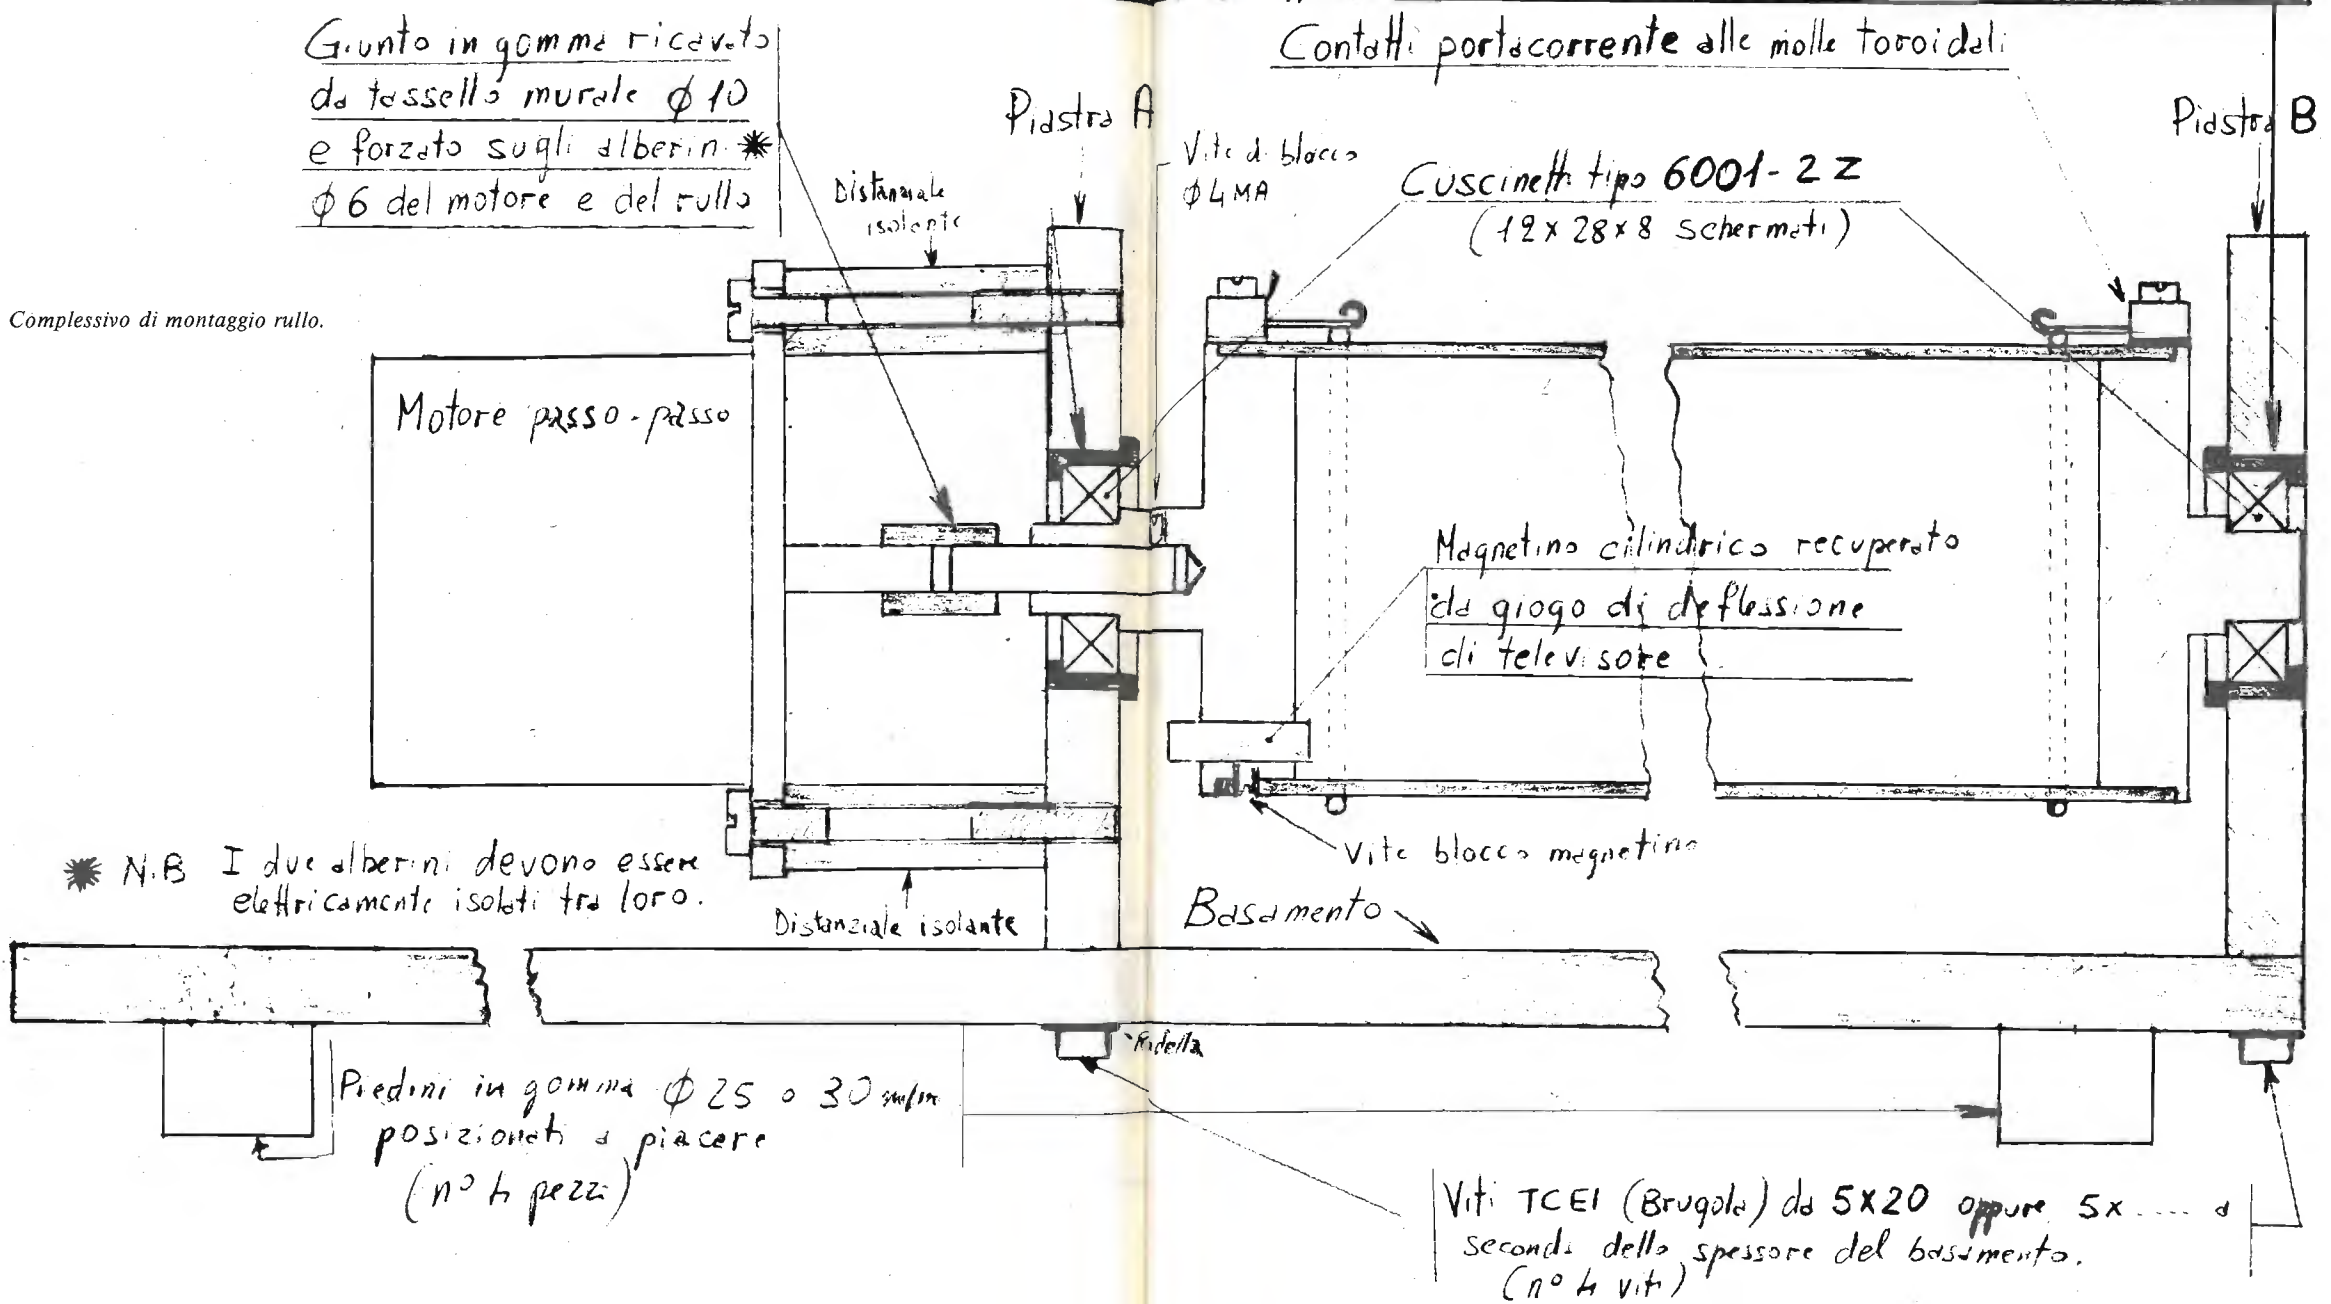 Giunto in gomma ricavato
da tassello murale ϕ 10
e forzato sugli alberini ✹
ϕ 6 del motore e del rullo
Contatti portacorrente alle molle toroidali
Piastra A
Piastra B
Vite di blocco
ϕ 4 MA
Distanziale
isolante
Cuscinetti tipo 6001-2Z
(12 x 28 x 8 schermati)
Complessivo di montaggio rullo.
Motore passo-passo
Magnetino cilindrico recuperato
da giogo di deflessione
di televisore
Vite blocco magnetino
✹ N.B I due alberini devono essere
elettricamente isolati tra loro.
Distanziale isolante
Basamento
Ridella
Piedini in gomma ϕ 25 o 30 m/m
posizionati a piacere
(n° 4 pezzi)
Viti TCEI (Brugola) da 5x20 oppure 5x .... a
seconda dello spessore del basamento.
(n° 4 viti)